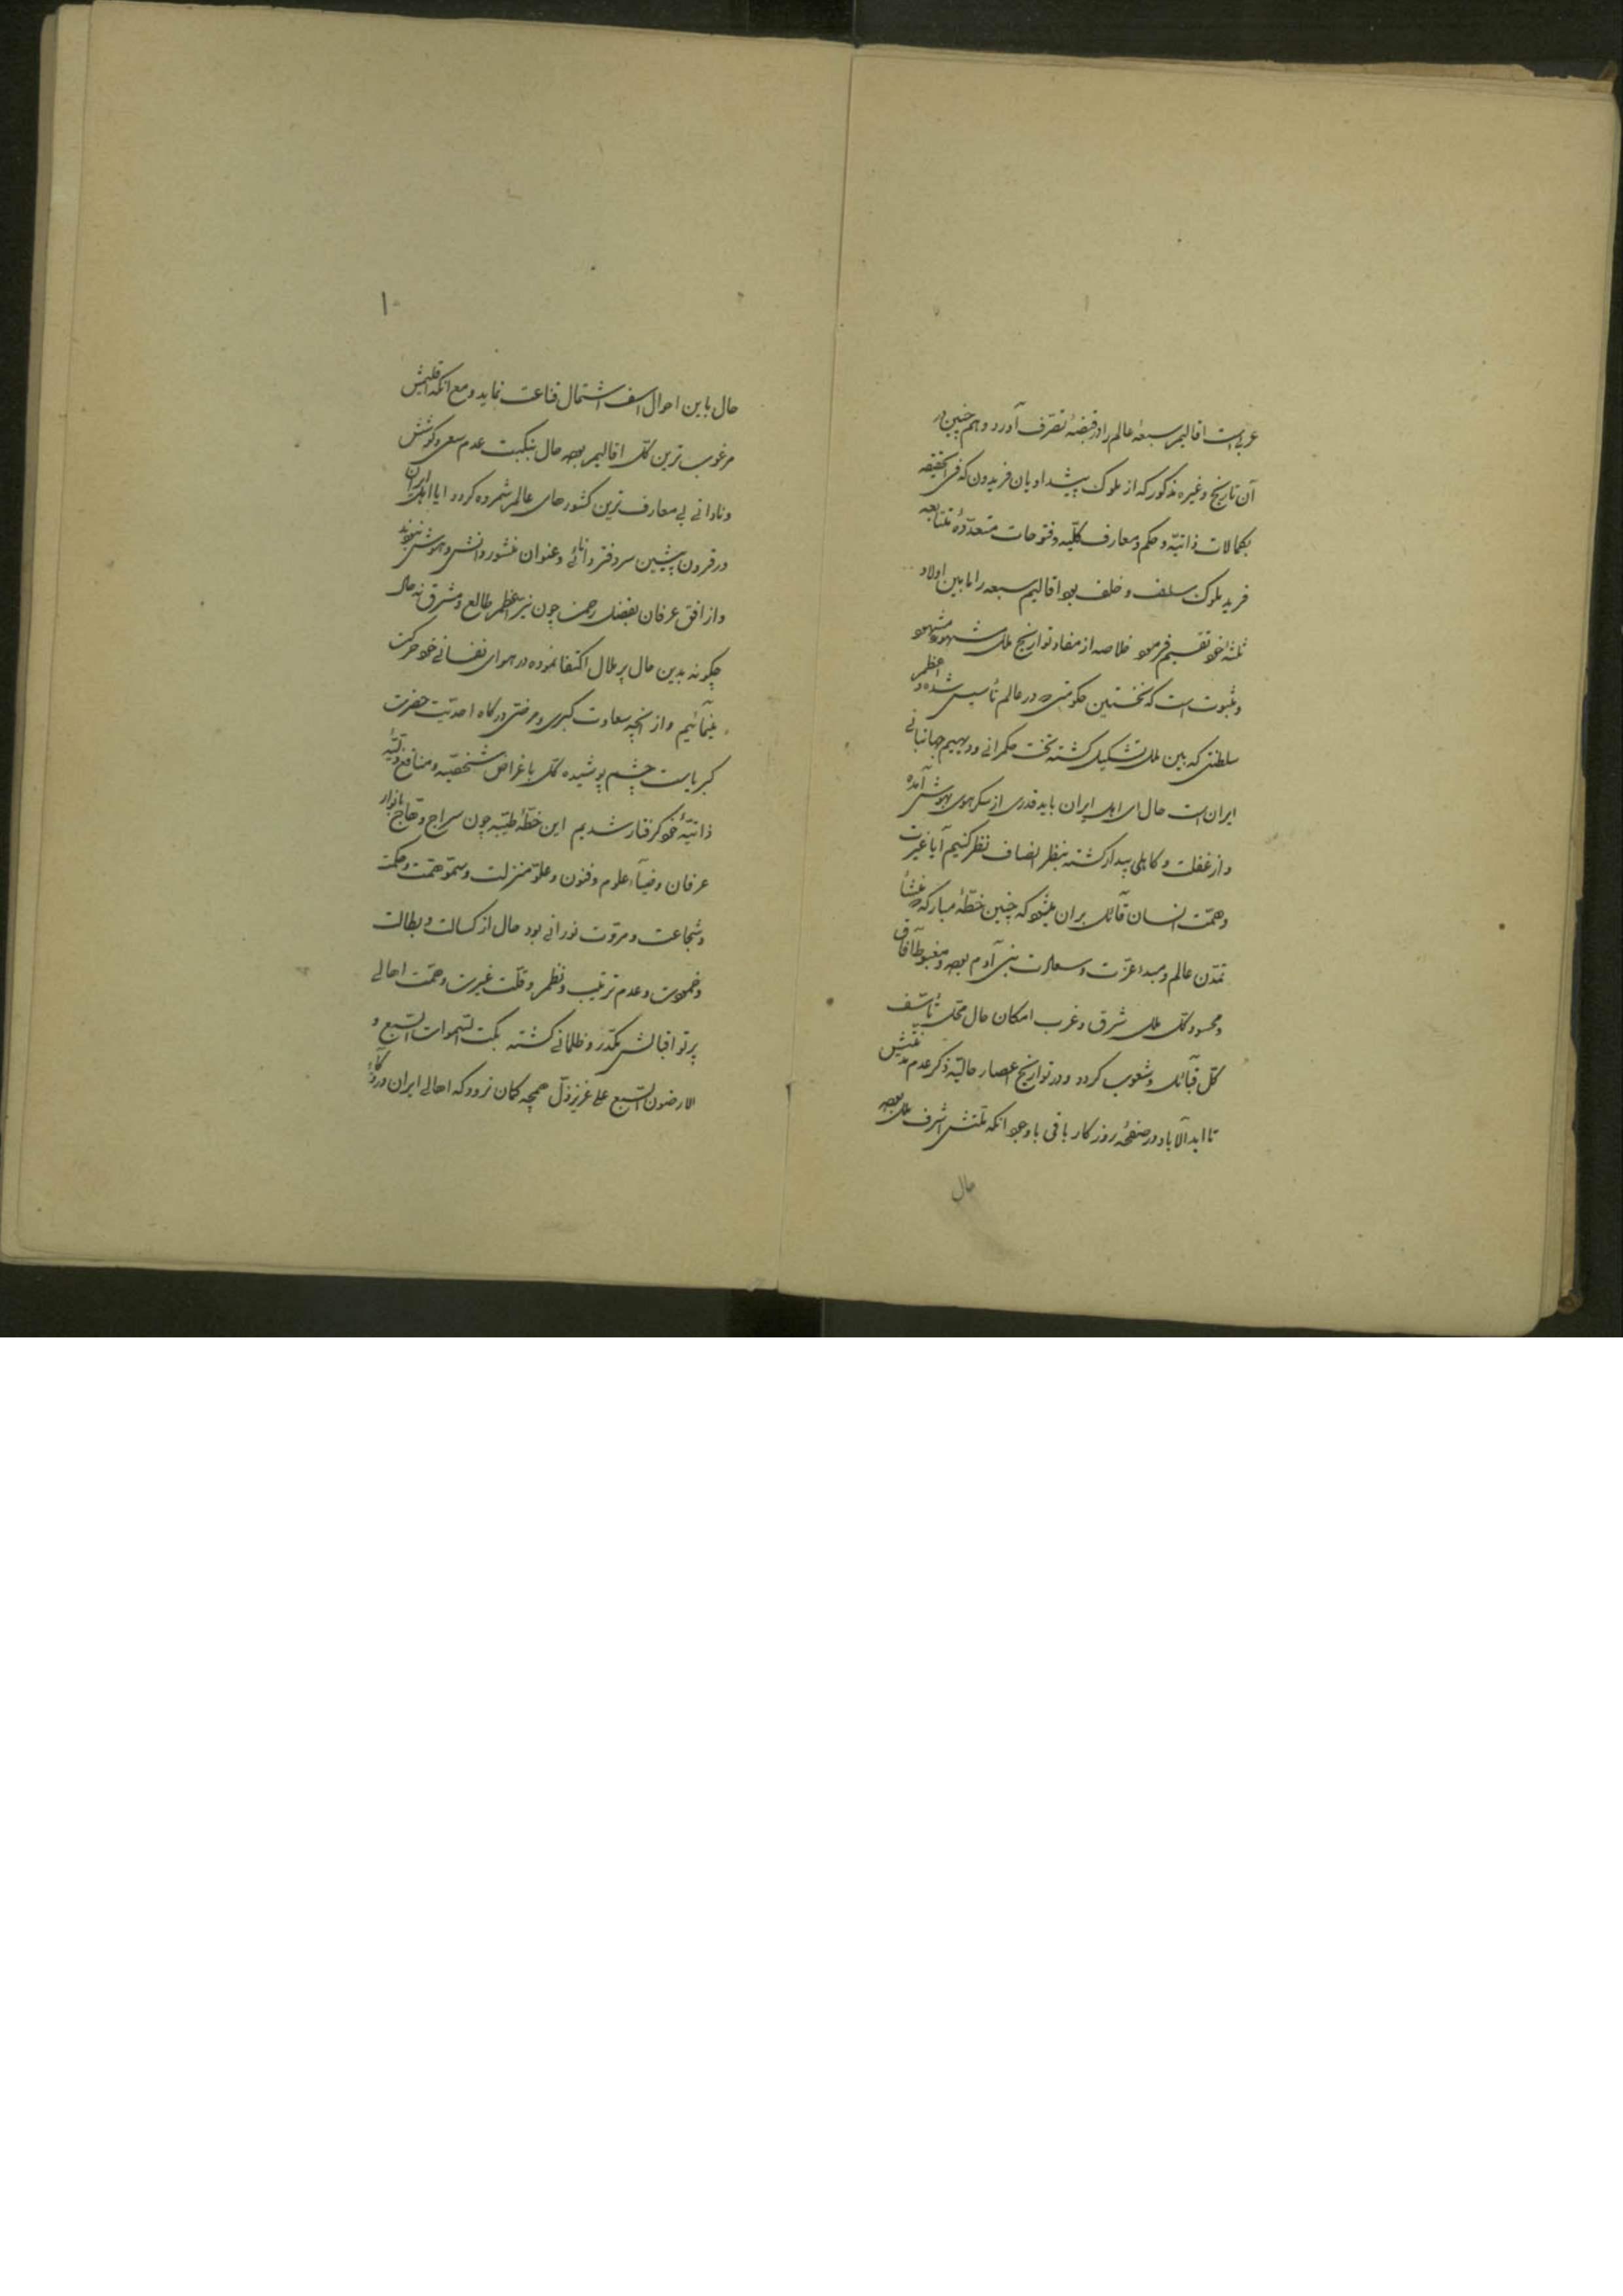 عربی است اقالیم سبعهٔ عالم را در قبضهٔ تصرف آورد و هم چنین در
آن تاریخ و غیره مذکور که از ملوک پیشدادیان فریدون که فی الحقیقه
بکمالات ذاتیّه و حکم و معارف کلّیه و فتوحات متعدّدهٔ متتابعه
فرید ملوک سلف و خلف بود اقالیم سبعه را مابین اولاد
ثلثهٔ خود تقسیم فرمود خلاصه از مفاد تواریخ ملل مشهوره مشهود
و مثبوت است که نخستین حکومتی که در عالم تأسیس شده و اعظم
سلطنتی که بین ملل تشکیل گشته تخت حکمرانی و دیهیم جهانبانی
ایران است حال ای اهل ایران باید قدری از سکر هوی بهوش آمده
و از غفلت و کاهلی بیدار گشته بنظر انصاف نظر کنیم آیا غیرت
و همّت انسان قآئل بر آن میشود که چنین خطّهٔ مبارکه که منشأ
تمدّن عالم و مبدء عزّت و سعادت بنی آدم بوده و مغبوط آفاق
و محسود کلّ ملل شرق و غرب امکان حال محلّ تأسّف
کلّ قبآئل و شعوب گردد و در تواریخ اعصار حالیّه ذکر عدم مدنیتش
تا ابد الآباد در صفحهٔ روزگار باقی با وجود انکه ملتش اشرف ملل بوده
حال
۱۰
حال باین احوال اسف اشتمال قناعت نماید و مع انکه اقلیمش
مرغوب ترین کلّ اقالیم بوده حال بنکبت عدم سعی و کوشش
و نادانی بی معارف ترین کشورهای عالم شمرده گردد ایا اهل ایران
در قرون پیشین سر دفتر دانائی و عنوان منشور دانش و هوش نبودند
و از افق عرفان بفضل رحمن چون نیّر اعظم طالع و مشرق نه حال
چگونه بدین حال پر ملال اکتفا نموده در هوای نفسانی خود حرکت
مینمآئیم و از انچه سعادت کبری و مرضیّ درگاه احدیّت حضرت
کبریاست چشم پوشیده کل باغراض شخصیّه و منافع ذلّیّه
ذاتیّهٔ خود گرفتار شدیم این خطّهٔ طیّبه چون سراج وهّاج بانوار
عرفان و ضیآء علوم و فنون و علوّ منزلت و سموّ همّت و حکمت
و شجاعت و مروّت نورانی بود حال از کسالت و بطالت
و خمودت و عدم ترتیب و نظم و قلّت غیرت و همّت اهالی
پرتو اقبالش مکدّر و ظلمانی گشته بکت السّموات السّبع و
الارضون السّبع علی عزیز ذلّ همچه گمان نرود که اهالی ایران در ذکآء